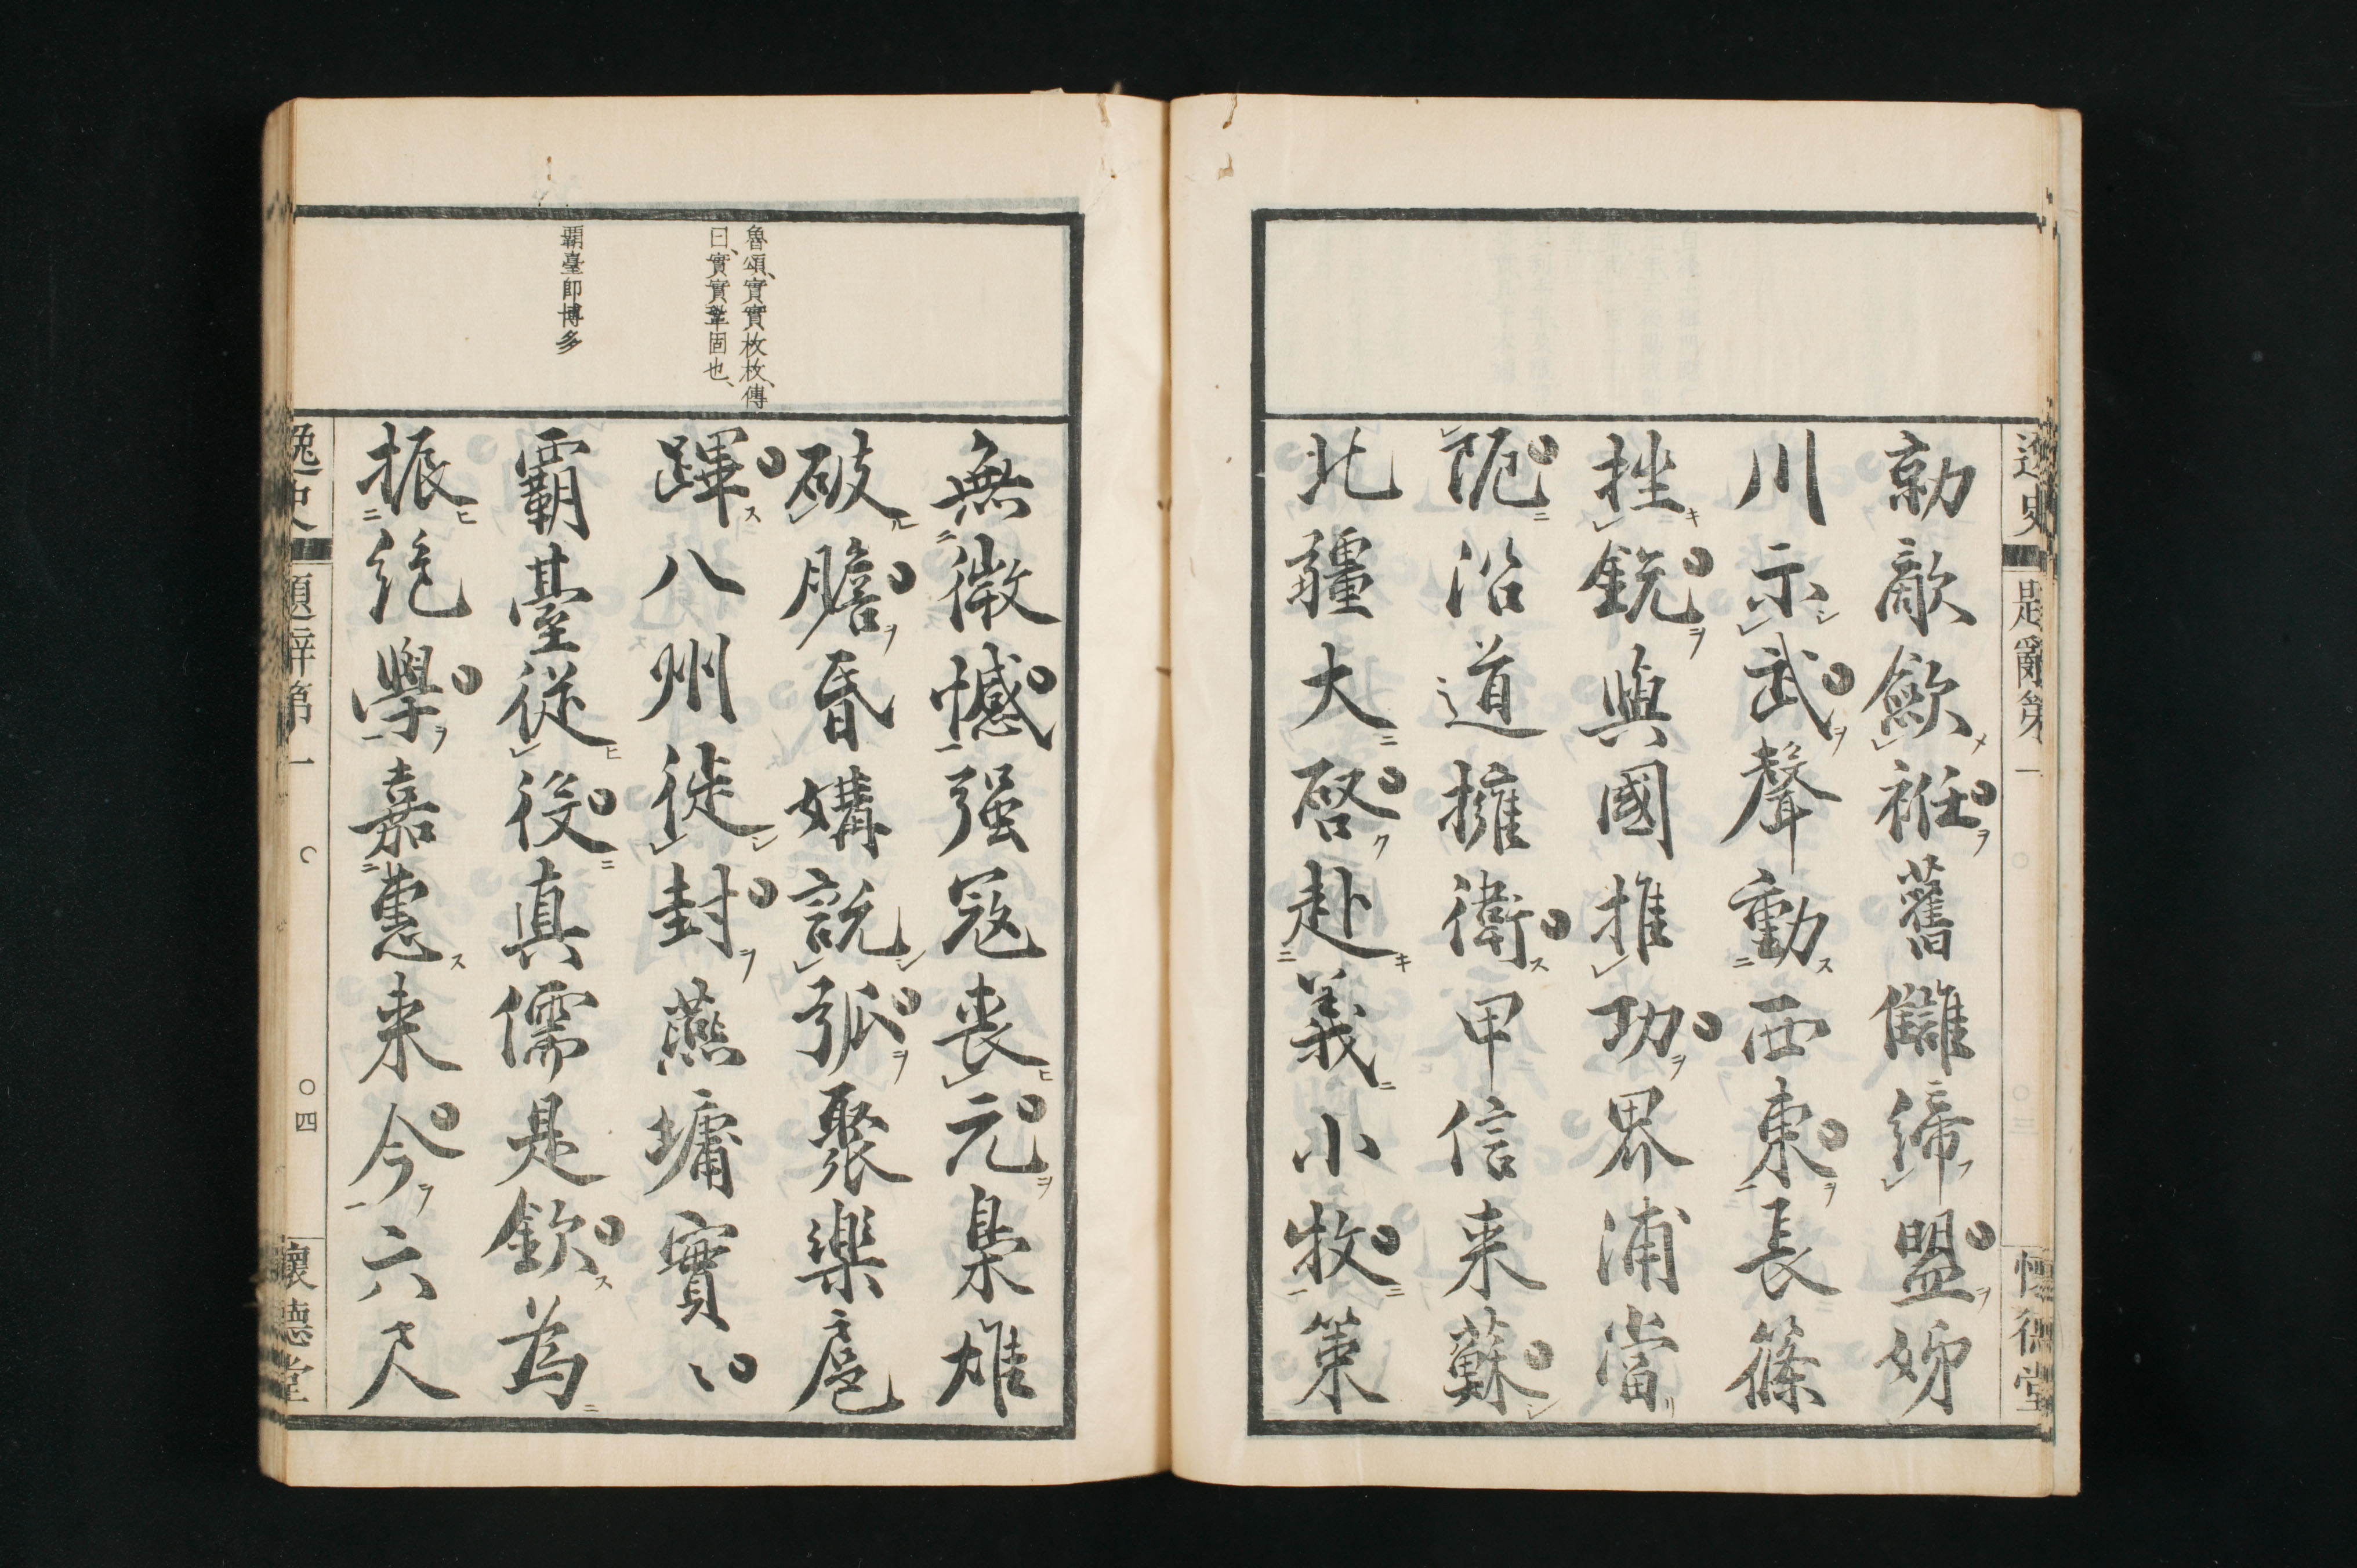 逸史 題辭第一 懷德堂
勍敵歛袵。舊讎締盟。姊
川示武。聲動西東。長篠
挫銳。與國推功。界浦當
阨。沿道擁衛。甲信来蘇。
北疆大啓。赴義小牧。策
魯頌、實實枚枚、傳
曰、實實鞏固也、
霸臺即博多
無微憾。强寇喪元。梟雄
破膽。昏媾説弧。聚樂扈
蹕。八州徙封。燕墉實〻。
霸臺從役。真儒是欽。為
振絶學。嘉惠来今。六尺
逸史 題辭第一 〇四 懷德堂